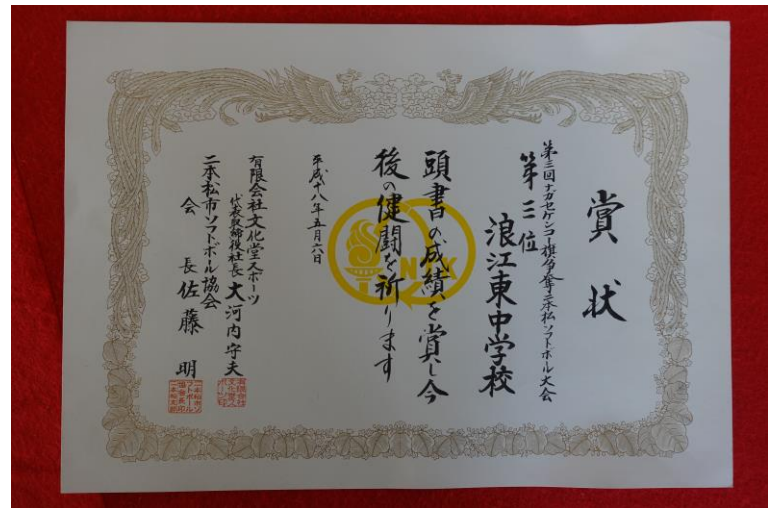 賞状
第三回ナガセケンコー旗争奪二本松ソフトボール大会
第三位
浪江東中学校
頭書の成績を賞し今
後の健闘を祈ります
平成十八年五月六日
有限会社文化堂スポーツ
代表取締役社長大河内守夫
二本松市ソフトボール協会
会長佐藤明